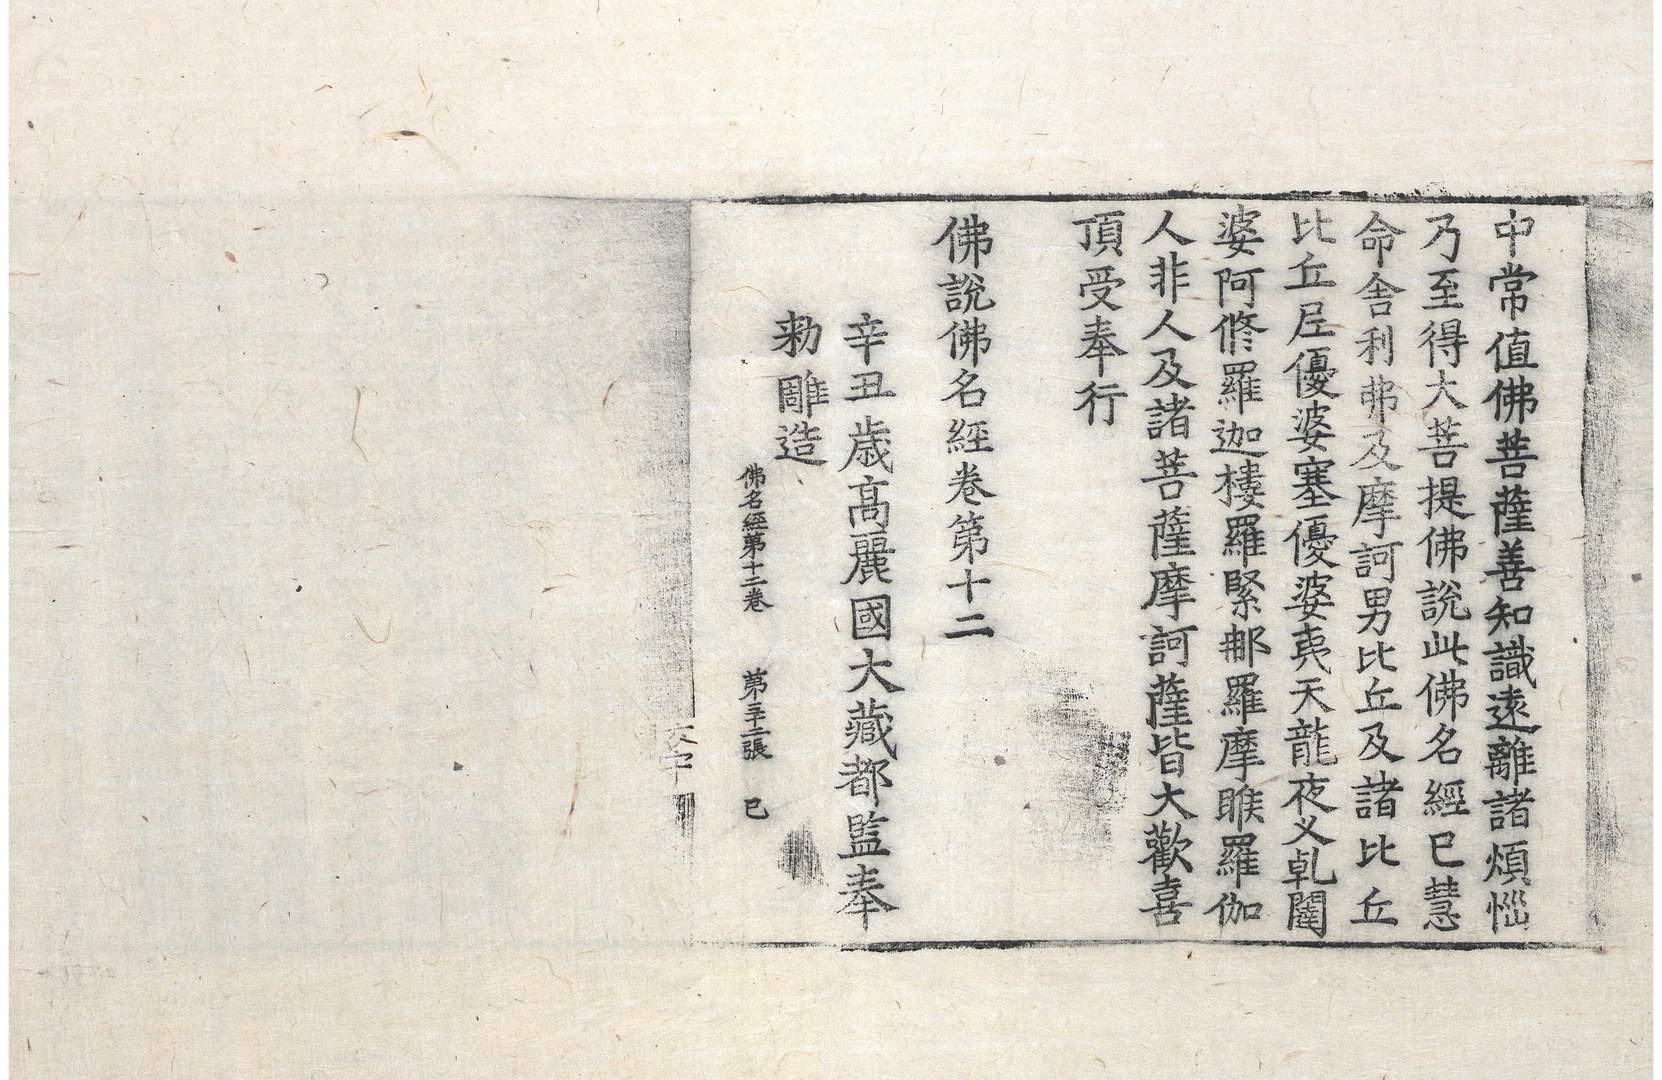 中常值佛菩薩善知識遠離諸煩惱
乃至得大菩提佛說此佛名經已慧
命舍利弗及摩訶男比丘及諸比丘
比丘尼優婆塞優婆夷天龍夜叉乹闥
婆阿脩羅迦樓羅緊那羅摩睺羅伽
人非人及諸菩薩摩訶薩皆大歡喜
頂受奉行
佛說佛名經卷第十二
辛丑歲高麗國大藏都監奉
勑雕造
佛名經第十二卷 第三十二張 已